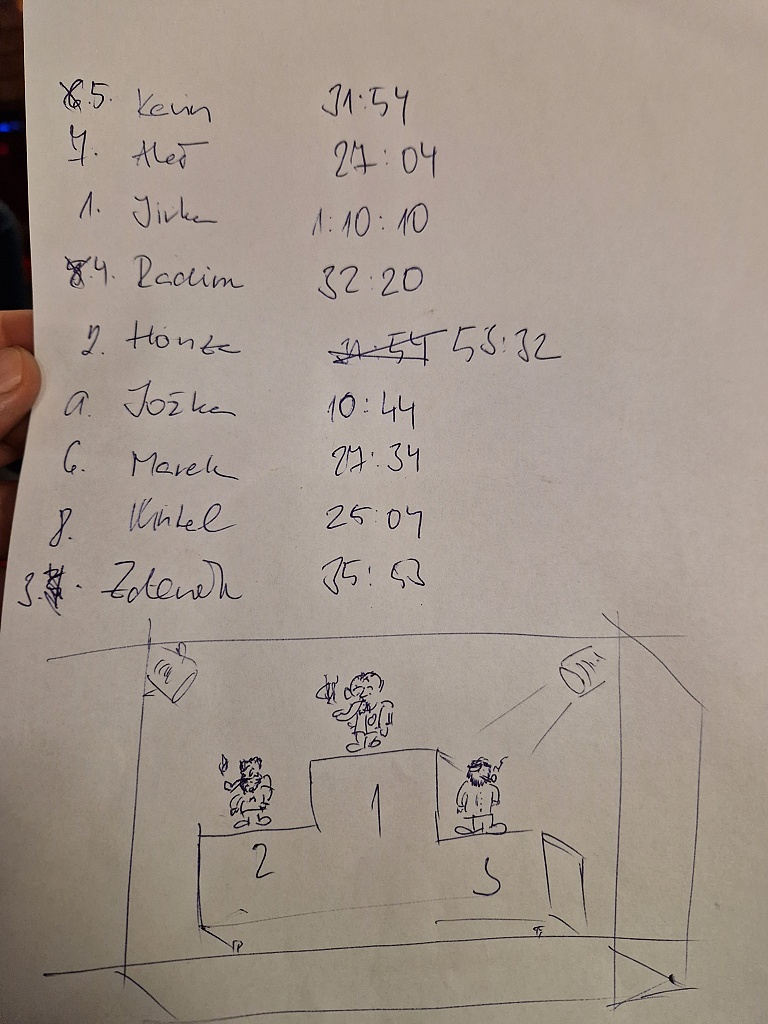 5. Kevin 31:54
7. Aleš 27:04
1. Jirka 1:10:10
4. Radim 32:20
2. Honza 31:54 53:32
9. Jožka 10:44
6. Marek 27:34
8. 25:04
3. Zdeněk 35:53
1
2
3